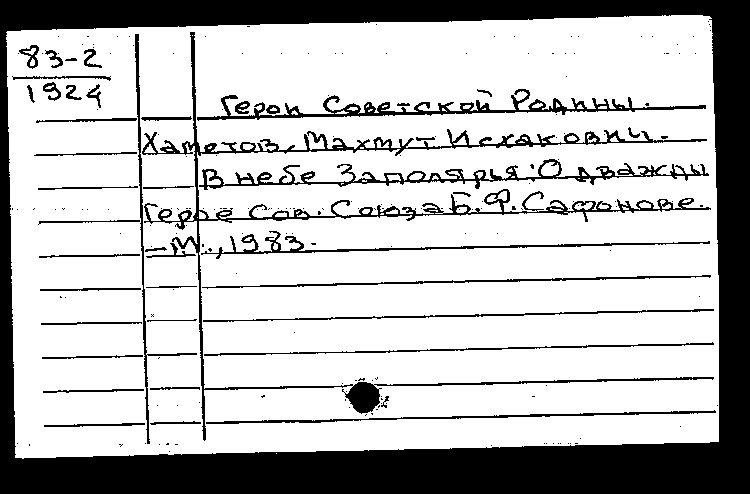 83-2
1924
Герои Советской Родины.
Хаметов, Махмут Исхакович.
В небе Заполярья: О дважды
Герое Сов. Союза Б.Ф. Сафонове.
— М., 1983.